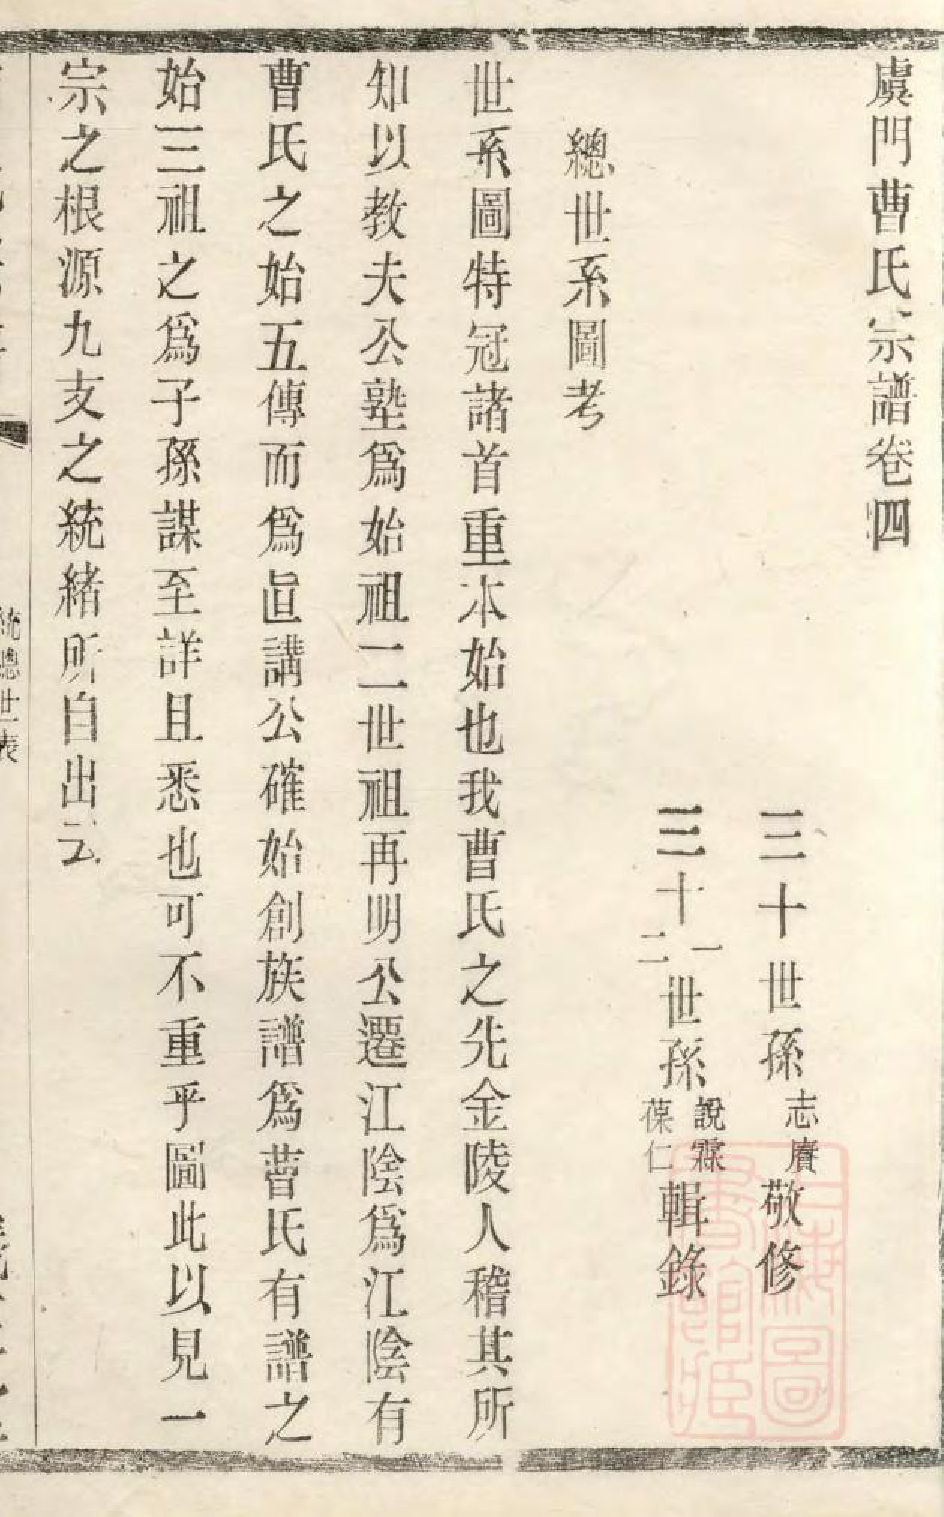 虞門曹氏宗譜卷四
三十世孫志賡敬修
三十一二世孫說霖葆仁輯錄
總世系圖考
世系圖特冠諸首重本始也我曹氏之先金陵人稽其所
知以教夫公塾爲始祖二世祖再明公遷江陰爲江陰有
曹氏之始五傳而爲直講公確始創族譜爲曹氏有譜之
始三祖之爲子孫謀至詳且悉也可不重乎圖此以見一
宗之根源九支之統緒所自出云
統總世表